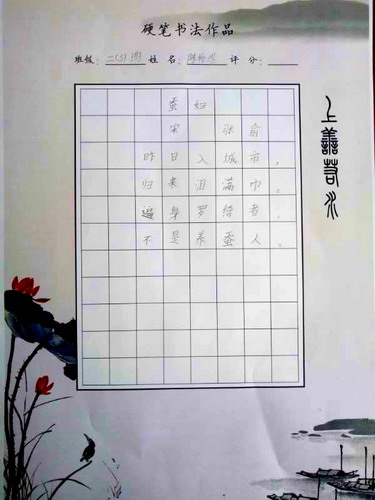 硬笔书法作品
班级：二(5)班 姓名： 评分：
蚕妇
宋 张俞
昨日入城市，
归来泪满巾。
遍身罗绮者，
不是养蚕人。
上善若水